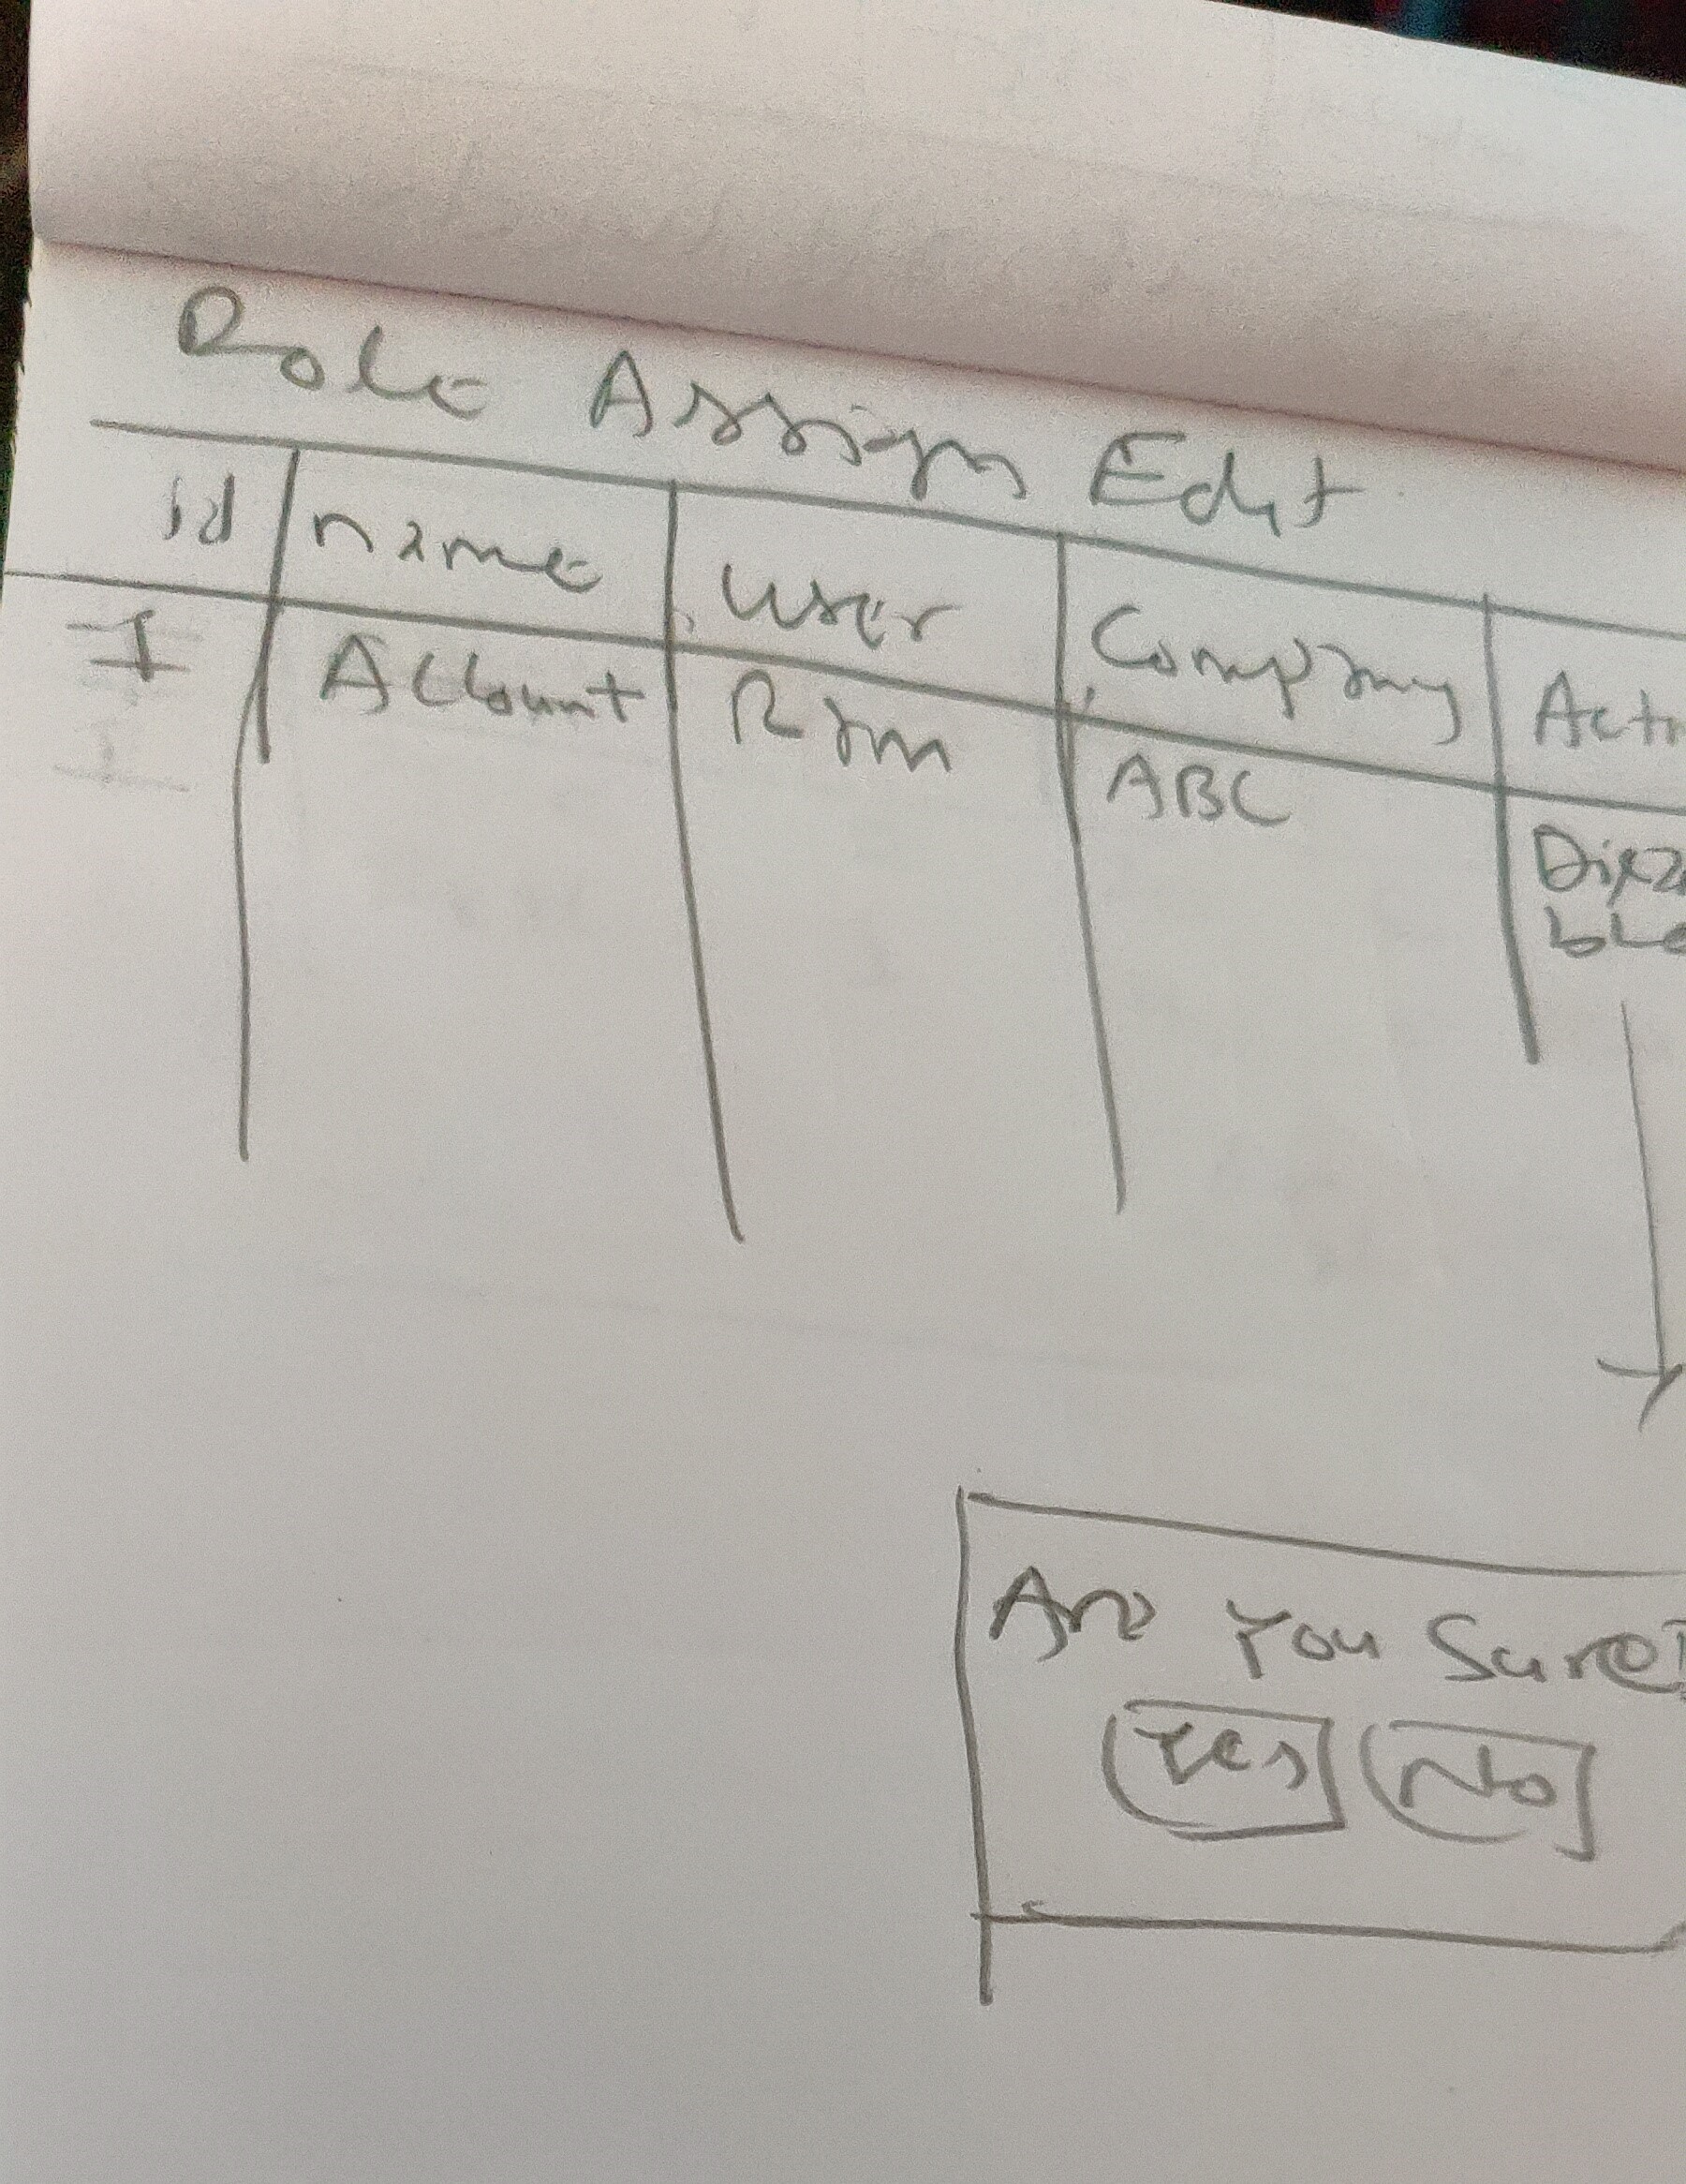 Role Assign Edit
id name user Company Acti
1 Account Ram ABC Disa
ble
Are You Sure
Yes No